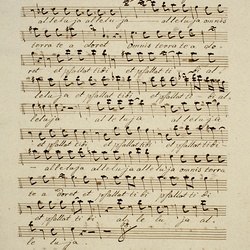 alleluja alleluja alleluja omnis
terra te adoret omnis terra te ado=
ret et psallat tibi et psallat tibi al=
leluja et psallat tibi et psallat tibi al=
leluja alleluja alleluja
et psallat tibi et psallat tibi
alleluja alleluja alleluja omnis terra
te adoret et psallat tibi et psallat tibi
et psallat tibi alleluja al=
leluja.